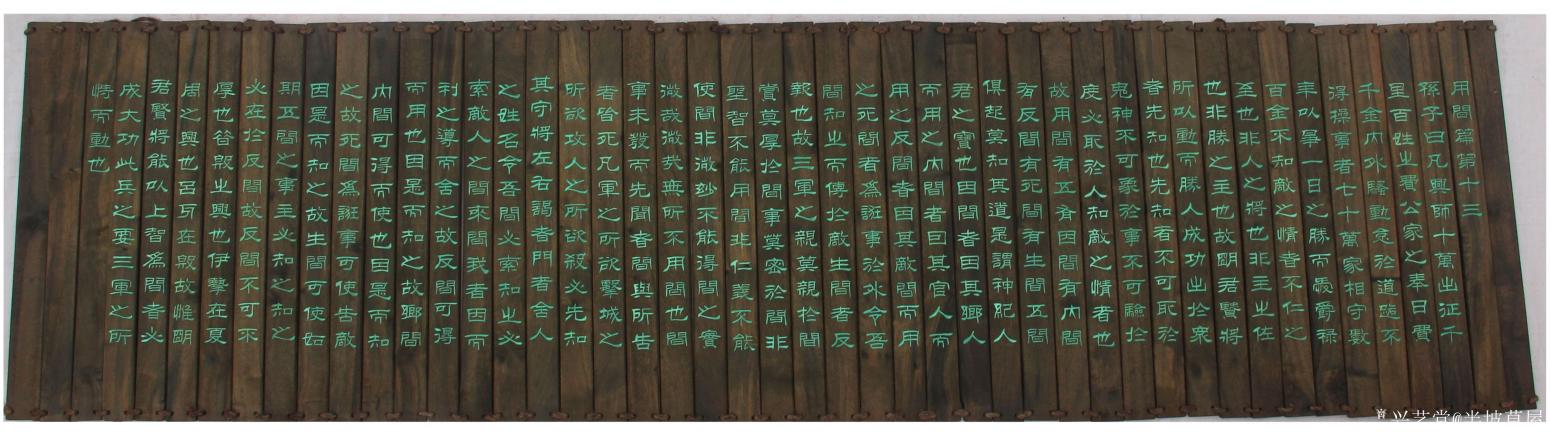 用間篇第十三
孫子曰凡興師十萬出征千
里百姓之費公家之奉日費
千金內外騷動怠於道路不
得操事者七十萬家相守數
年以爭一日之勝而愛爵祿
百金不知敵之情者不仁之
至也非人之將也非主之佐
也非勝之主也故明君賢將
所以動而勝人成功出於衆
者先知也先知者不可取於
鬼神不可象於事不可驗於
度必取於人知敵之情者也
故用間有五有因間有內間
有反間有死間有生間五間
俱起莫知其道是謂神紀人
君之寶也因間者因其鄉人
而用之內間者因其官人而
用之反間者因其敵間而用
之死間者爲誑事於外令吾
間知之而傳於敵生間者反
報也故三軍之親莫親於間
賞莫厚於間事莫密於間非
聖智不能用間非仁義不能
使間非微妙不能得間之實
微哉微哉無所不用間也間
事未發而先聞者間與所告
者皆死凡軍之所欲擊城之
所欲攻人之所欲殺必先知
其守將左右謁者門者舍人
之姓名令吾間必索知之必
索敵人之間來間我者因而
利之導而舍之故反間可得
而用也因是而知之故鄉間
內間可得而使也因是而知
之故死間爲誑事可使告敵
因是而知之故生間可使如
期五間之事主必知之知之
必在於反間故反間不可不
厚也昔殷之興也伊摯在夏
周之興也呂牙在殷故惟明
君賢將能以上智爲間者必
成大功此兵之要三軍之所
恃而動也
兴艺堂@半坡草屋